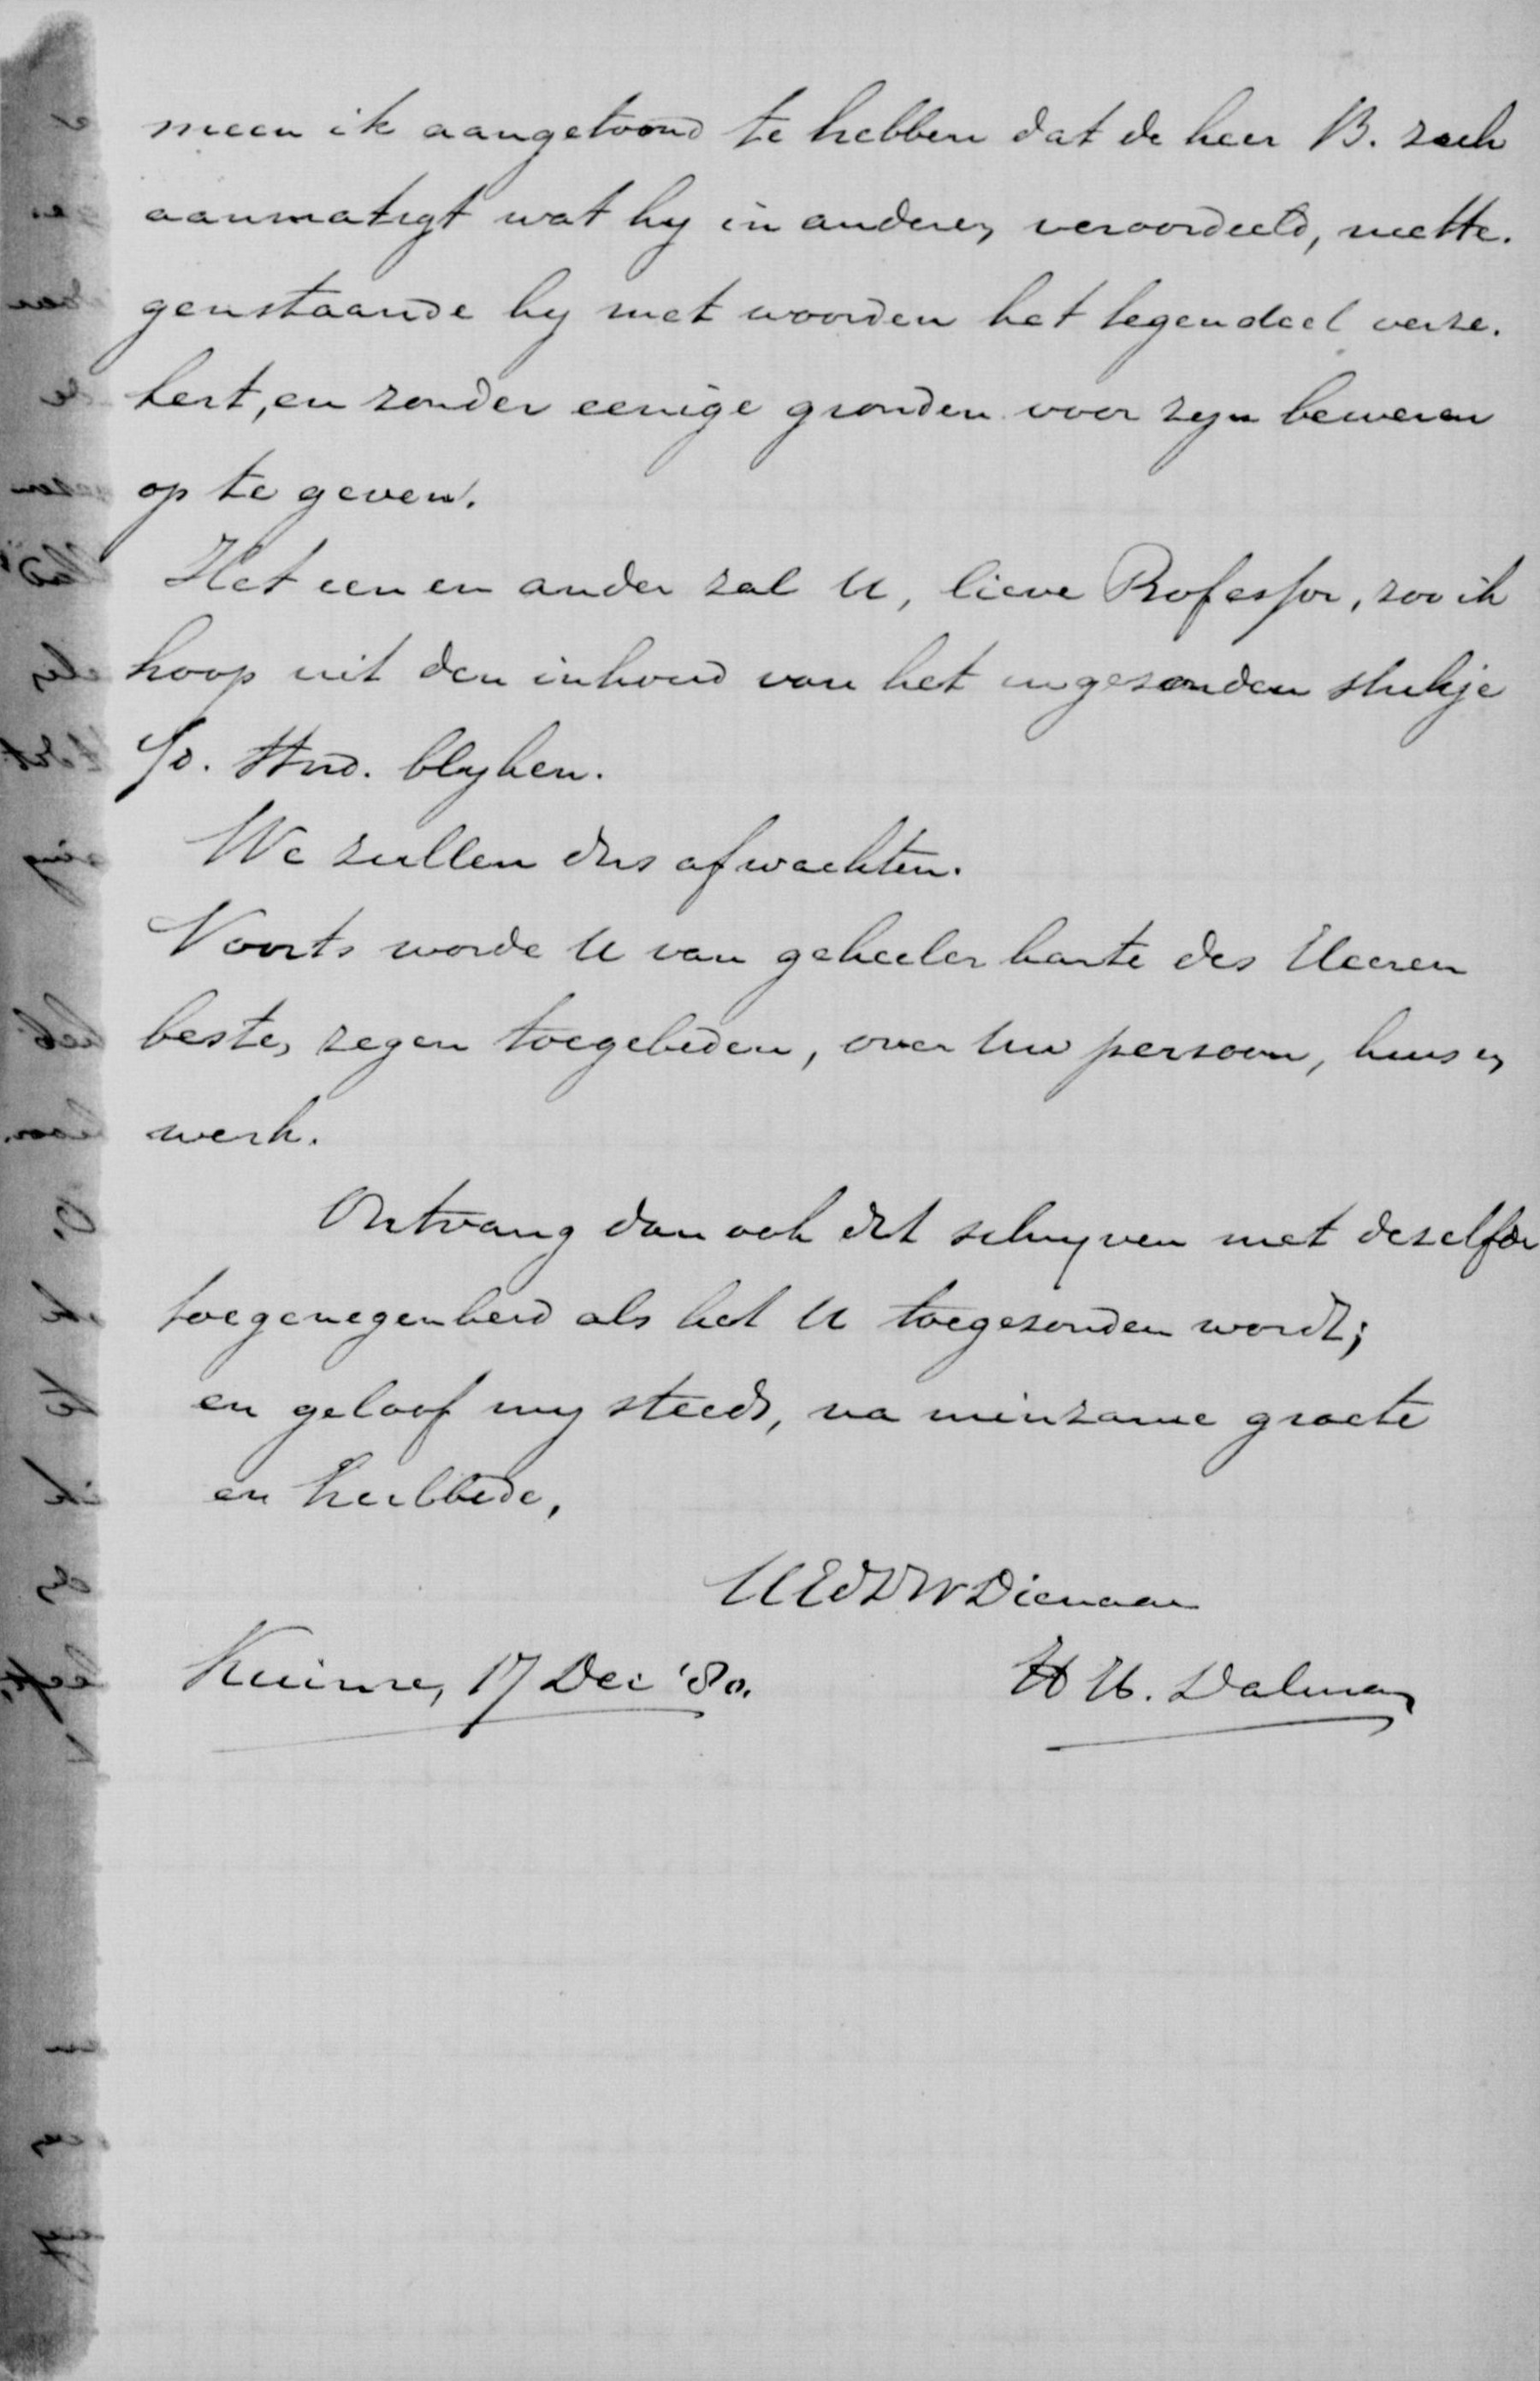 meen ik aangetoond te hebben dat de heer B. zich
aanmatigt wat hy in anderen veroordeeld, niette.
genstaande hy met woorden het tegendeel verze.
kert, en zonder eenige gronden voor zyn beweren
op te geven.
Het een en ander zal U, lieve Professor, zoo ik
hoop uit den inhoud van het ingezonden stukje
blyken.
We zullen dus afwachten.
Voorts worde U van geheeler harte des Heeren
beste zegen toegebeden, over Uw persoon, huis en
werk.
Ontvang dan ook dit schryven met dezelfde
toegenegenheid als het U toegezonden wordt;
en geloof my steeds, na minzame groete
en heilbede,
UEdDWDienaar
Kuinre, 17 Dec '80.
H H. Dalman